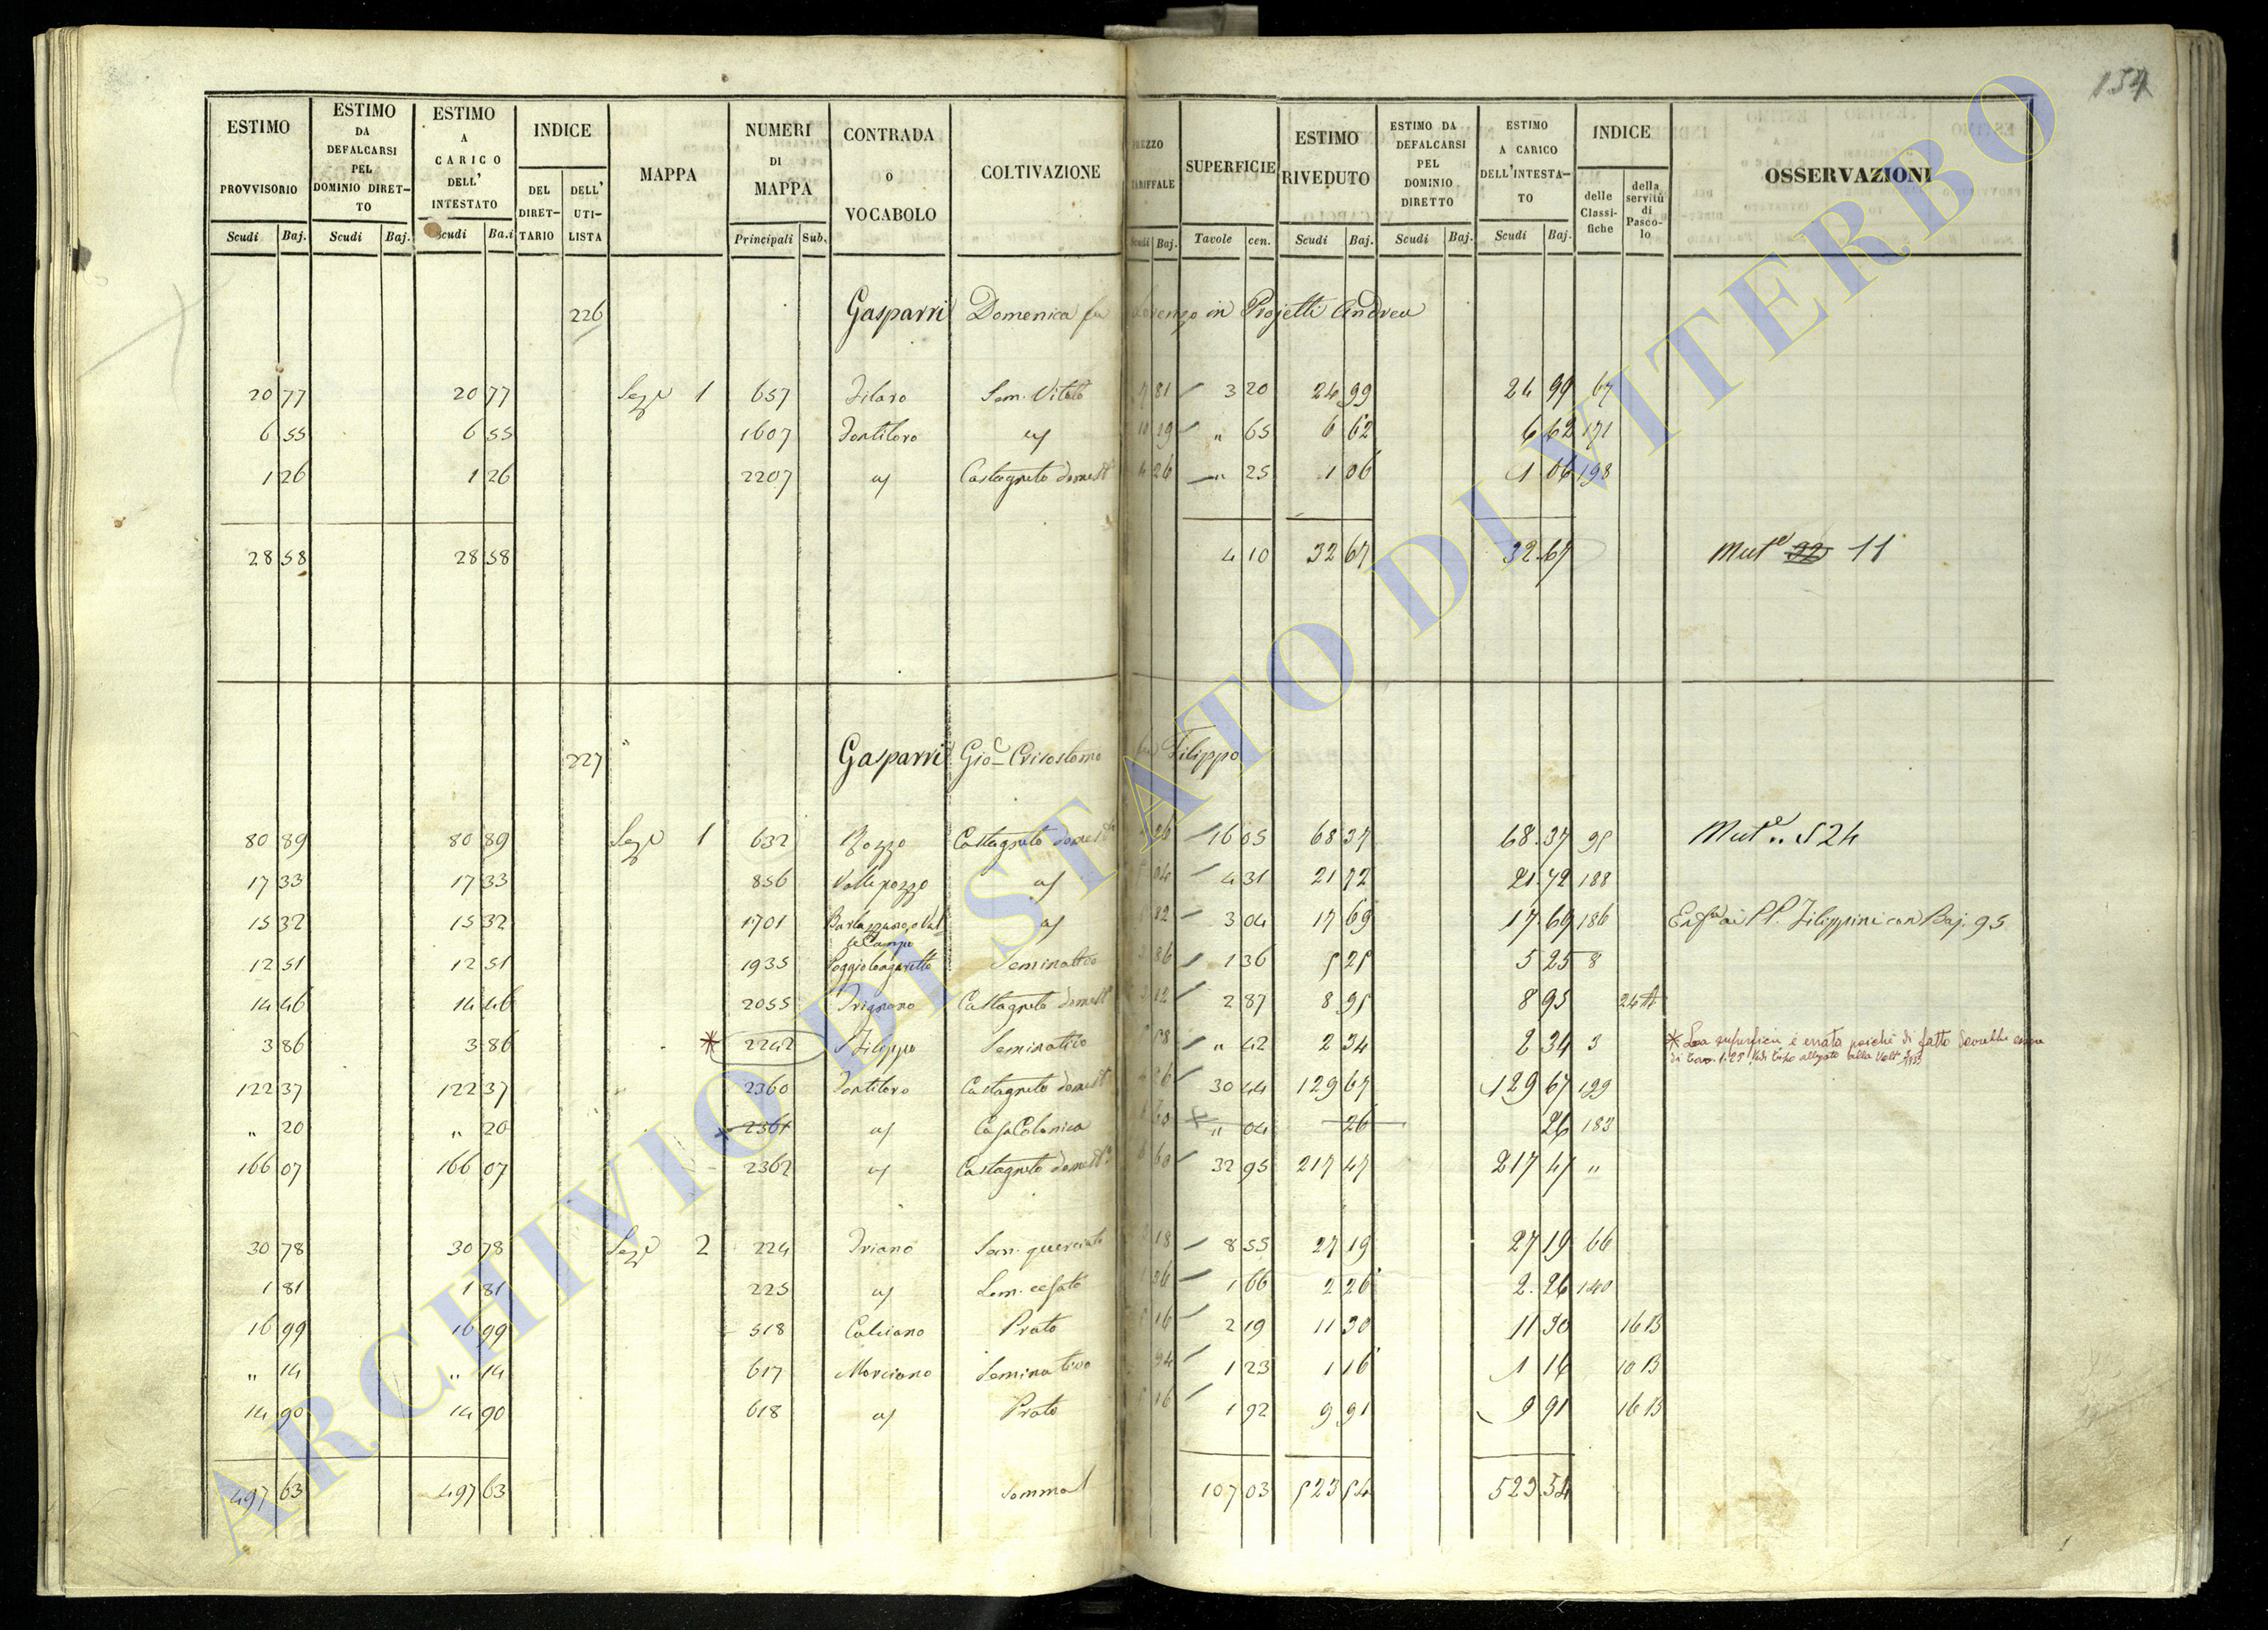 154
ESTIMO PROVVISORIO Scudi Baj. | ESTIMO DA DEFALCARSI PEL DOMINIO DIRET-TO Scudi Baj. | ESTIMO A CARICO DELL' INTESTATO Scudi Ba.i | INDICE DEL DIRET-TARIO DELL' UTI-LISTA | MAPPA | NUMERI DI MAPPA Principali Sub. | CONTRADA O VOCABOLO | COLTIVAZIONE | PREZZO TARIFFALE Scudi Baj. | SUPERFICIE Tavole cen. | ESTIMO RIVEDUTO Scudi Baj. | ESTIMO DA DEFALCARSI PEL DOMINIO DIRETTO Scudi Baj. | ESTIMO A CARICO DELL'INTESTA-TO Scudi Baj. | INDICE delle Classi-fiche della servitù di Pasco-lo | OSSERVAZIONI
226 Gasparri Domenica fu Lorenzo in Projetti Andrea
20 77 20 77 Seze 1 657 Filaro Sem. Vitato 81 3 20 24 99 24 99 67
6 55 6 55 1607 Fontiloro id 10 19 " 65 6 62 6 62 171
1 26 1 26 2207 id Castagneto domest 4 26 " 25 1 06 1 06 198
28 58 28 58 4 10 32 67 32.67 Mute 22 11
227 Gasparri Gioe Crisostomo fu Filippo
80 89 80 89 Seze 1 632 Rozzo Castagneto domest 26 16 05 68 37 68.37 95 Mute .. 524
17 33 17 33 856 Valle pozzo id 04 4 31 21 72 21.72 188
15 32 15 32 1701 id 82 3 04 17 69 17.69 186 Enfa ai PP. Filippini con Baj. 95
12 51 12 51 1935 Seminativo 86 1 36 5 25 5 25 8
14 46 14 46 2055 Trignano Castagneto domest 12 2 87 8 95 8 95 24 A
3 86 3 86 * 2242 S Filippo Seminativo 58 " 42 2 34 2 34 3 * La superficie è errata poichè di fatto dovrebbe essere
di Tavo. 1.25 Vedi tipo allegato alla Volt
122 37 122 37 2360 Fontiloro Castagneto domest 26 30 44 129 67 129 67 199
" 20 " 20 2361 id Casa Colonica " 04 26 26 183
166 07 166 07 2362 id Castagneto domest 6 60 32 95 217 47 217 47 "
30 78 30 78 Seze 2 224 Triano Sem. querciato 18 8 55 27 19 27 19 66
1 81 1 81 225 id Sem. cesato 36 1 66 2 26 2.26 140
16 99 16 99 518 Calciano Prato 16 2 19 11 30 11 30 16 B
" 14 " 14 617 Marciano Seminativo 94 1 23 1 16 1 16 10 B
14 90 14 90 618 id Prato 16 1 92 9 91 9 91 16 B
497 63 497 63 Somma 107 03 523 54 523.54
ARCHIVIO DI STATO DI VITERBO